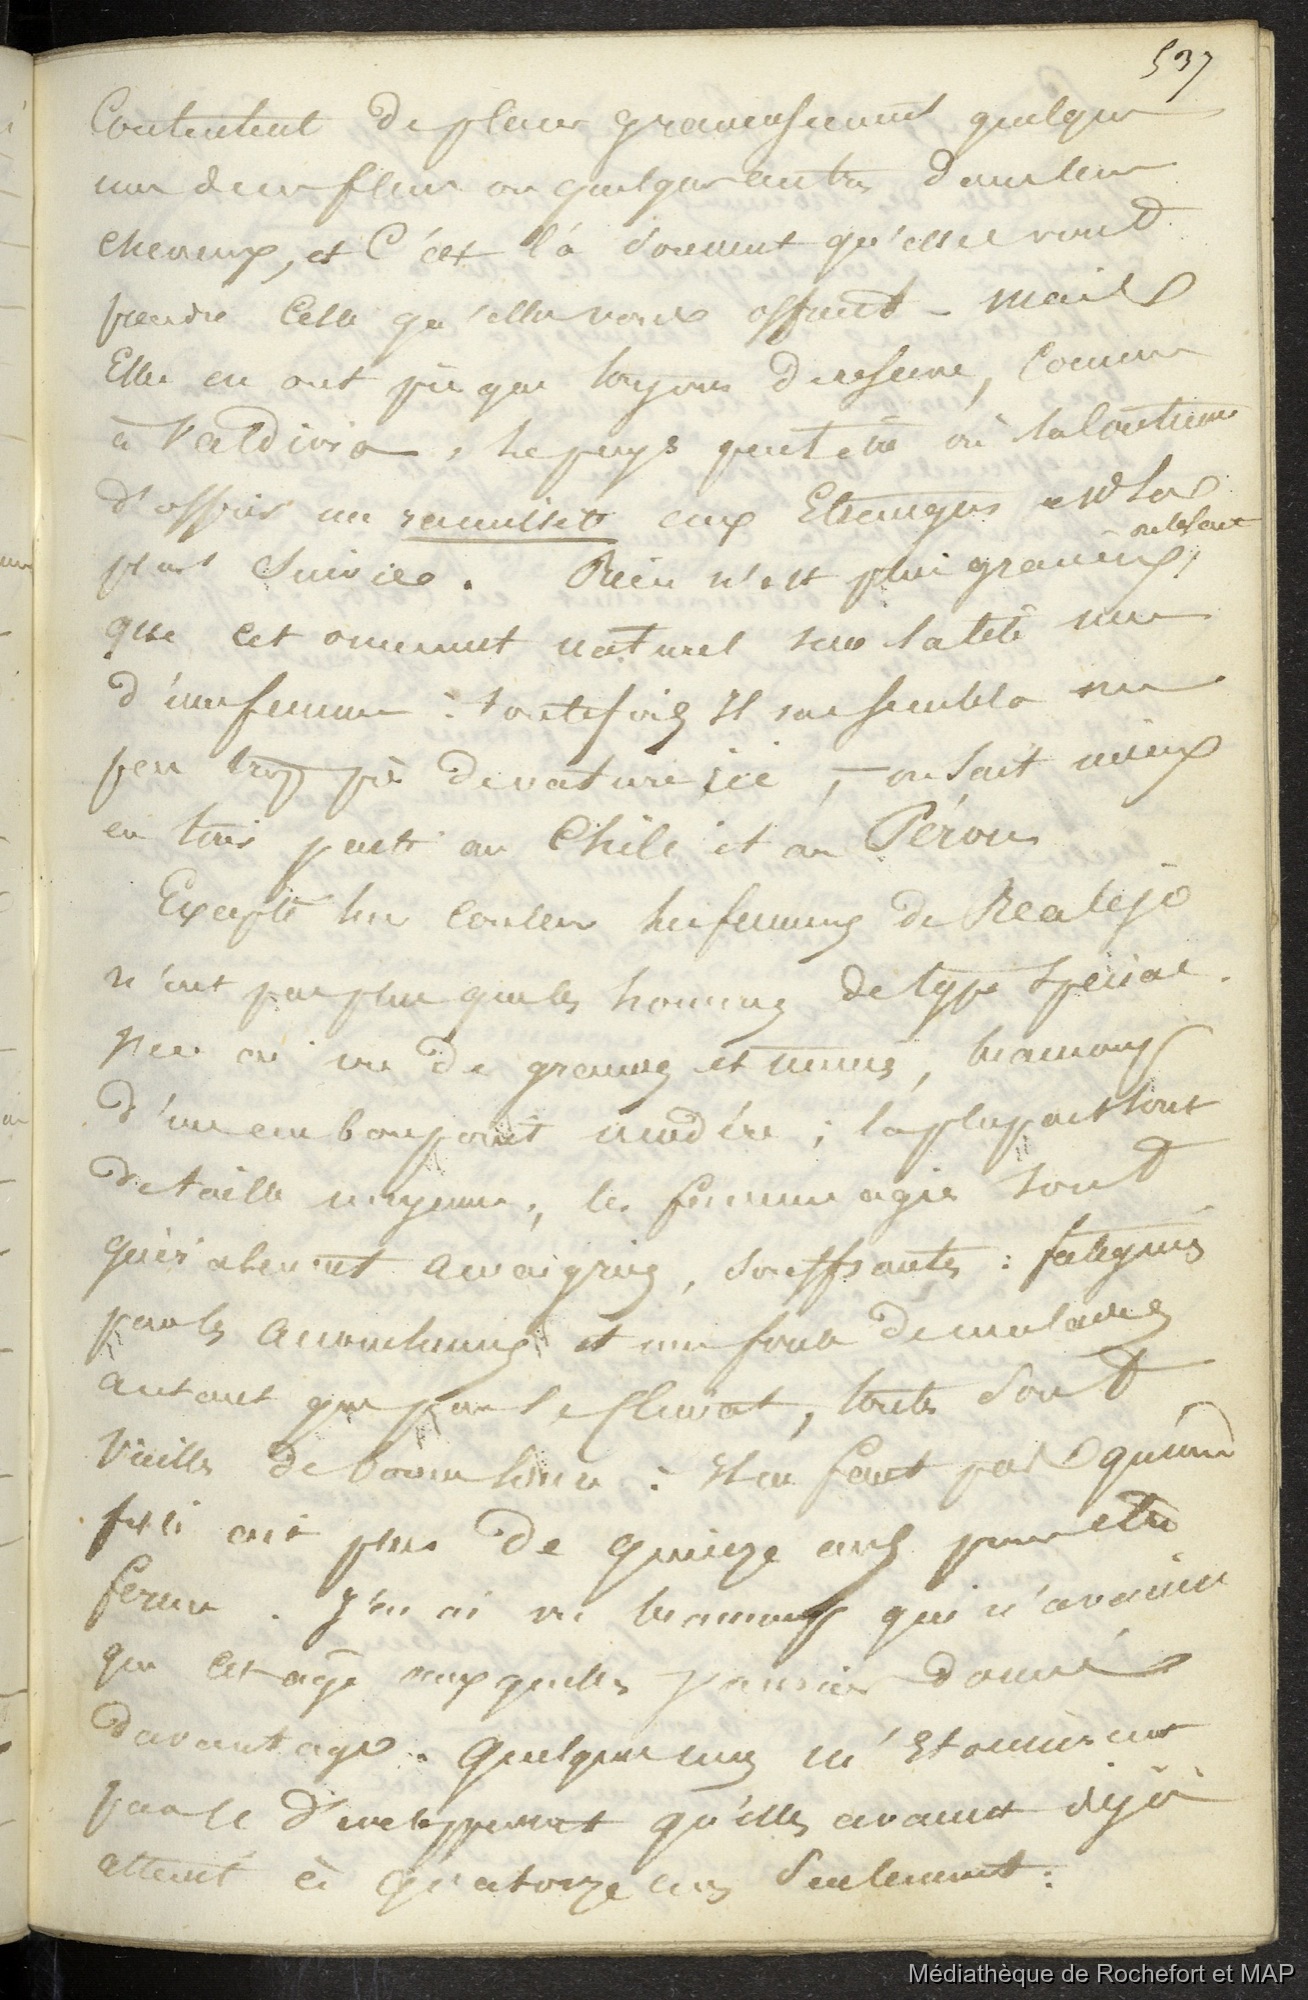 537
Contentent de placer gracieusement quelques
unes de ces fleurs ou quelques autres dans leurs
cheveux, et C'est là souvent qu'elles vont
prendre Celle qu'elles vous offrent - mais
Elles en ont près que toujours de reserve, Comme
à Valdivia, le pays peut être où la Coutume
d'offrir un ramillete aux Etrangers est la
plus suivie. Rien n'est plus gracieux,
que cet ornement naturel sur la tête nue
d'une femme : toutefois Il me sembla un
peu trop près de nature ici, — on sait mieux
en tirer parti au Chili et au Pérou
Excepté leur couleur les femmes de Realejo
n'ont pas plus que les hommes de type spécial.
J'en ai vu de grandes et minces, beaucoup
d'un embonpoint modéré ; la plupart sont
de taille moyenne ; les femmes agées sont
généralement amaigries, souffrantes : fatiguées
par les accouchements et une foule de maladies
autant que par le Climat, toutes sont
Vieilles de bonne heure : Il ne faut pas qu'une
fille ait plus de quinze ans pour être
femme. J'en ai vu beaucoup qui n'avaient
que cet age auxquelles j'aurais donné
davantage. Quelques unes m'Etonnèrent
par le developpement qu'elles avaient déjà
atteint à quatorze ans Seulement.